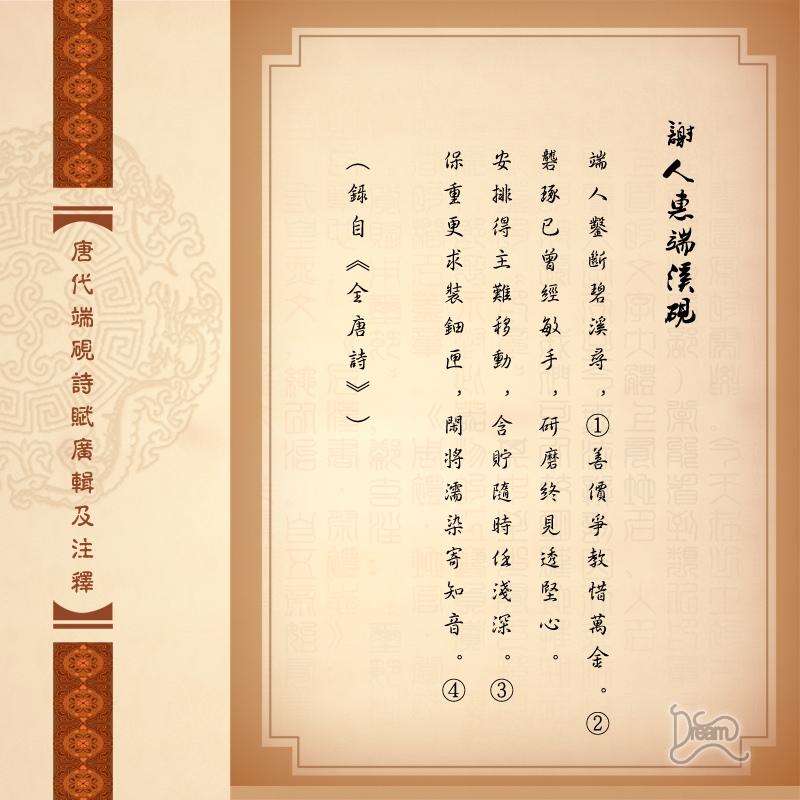 謝人惠端溪硯
端人鑿斷碧溪尋，①善價爭教惜萬金。②
礱琢已曾經敏手，研磨終見透堅心。
安排得主難移動，含貯隨時任淺深。③
保重更求裝鈿匣，閑將濡染寄知音。④
（錄自《全唐詩》）
唐代端硯詩賦廣輯及注釋
Dream